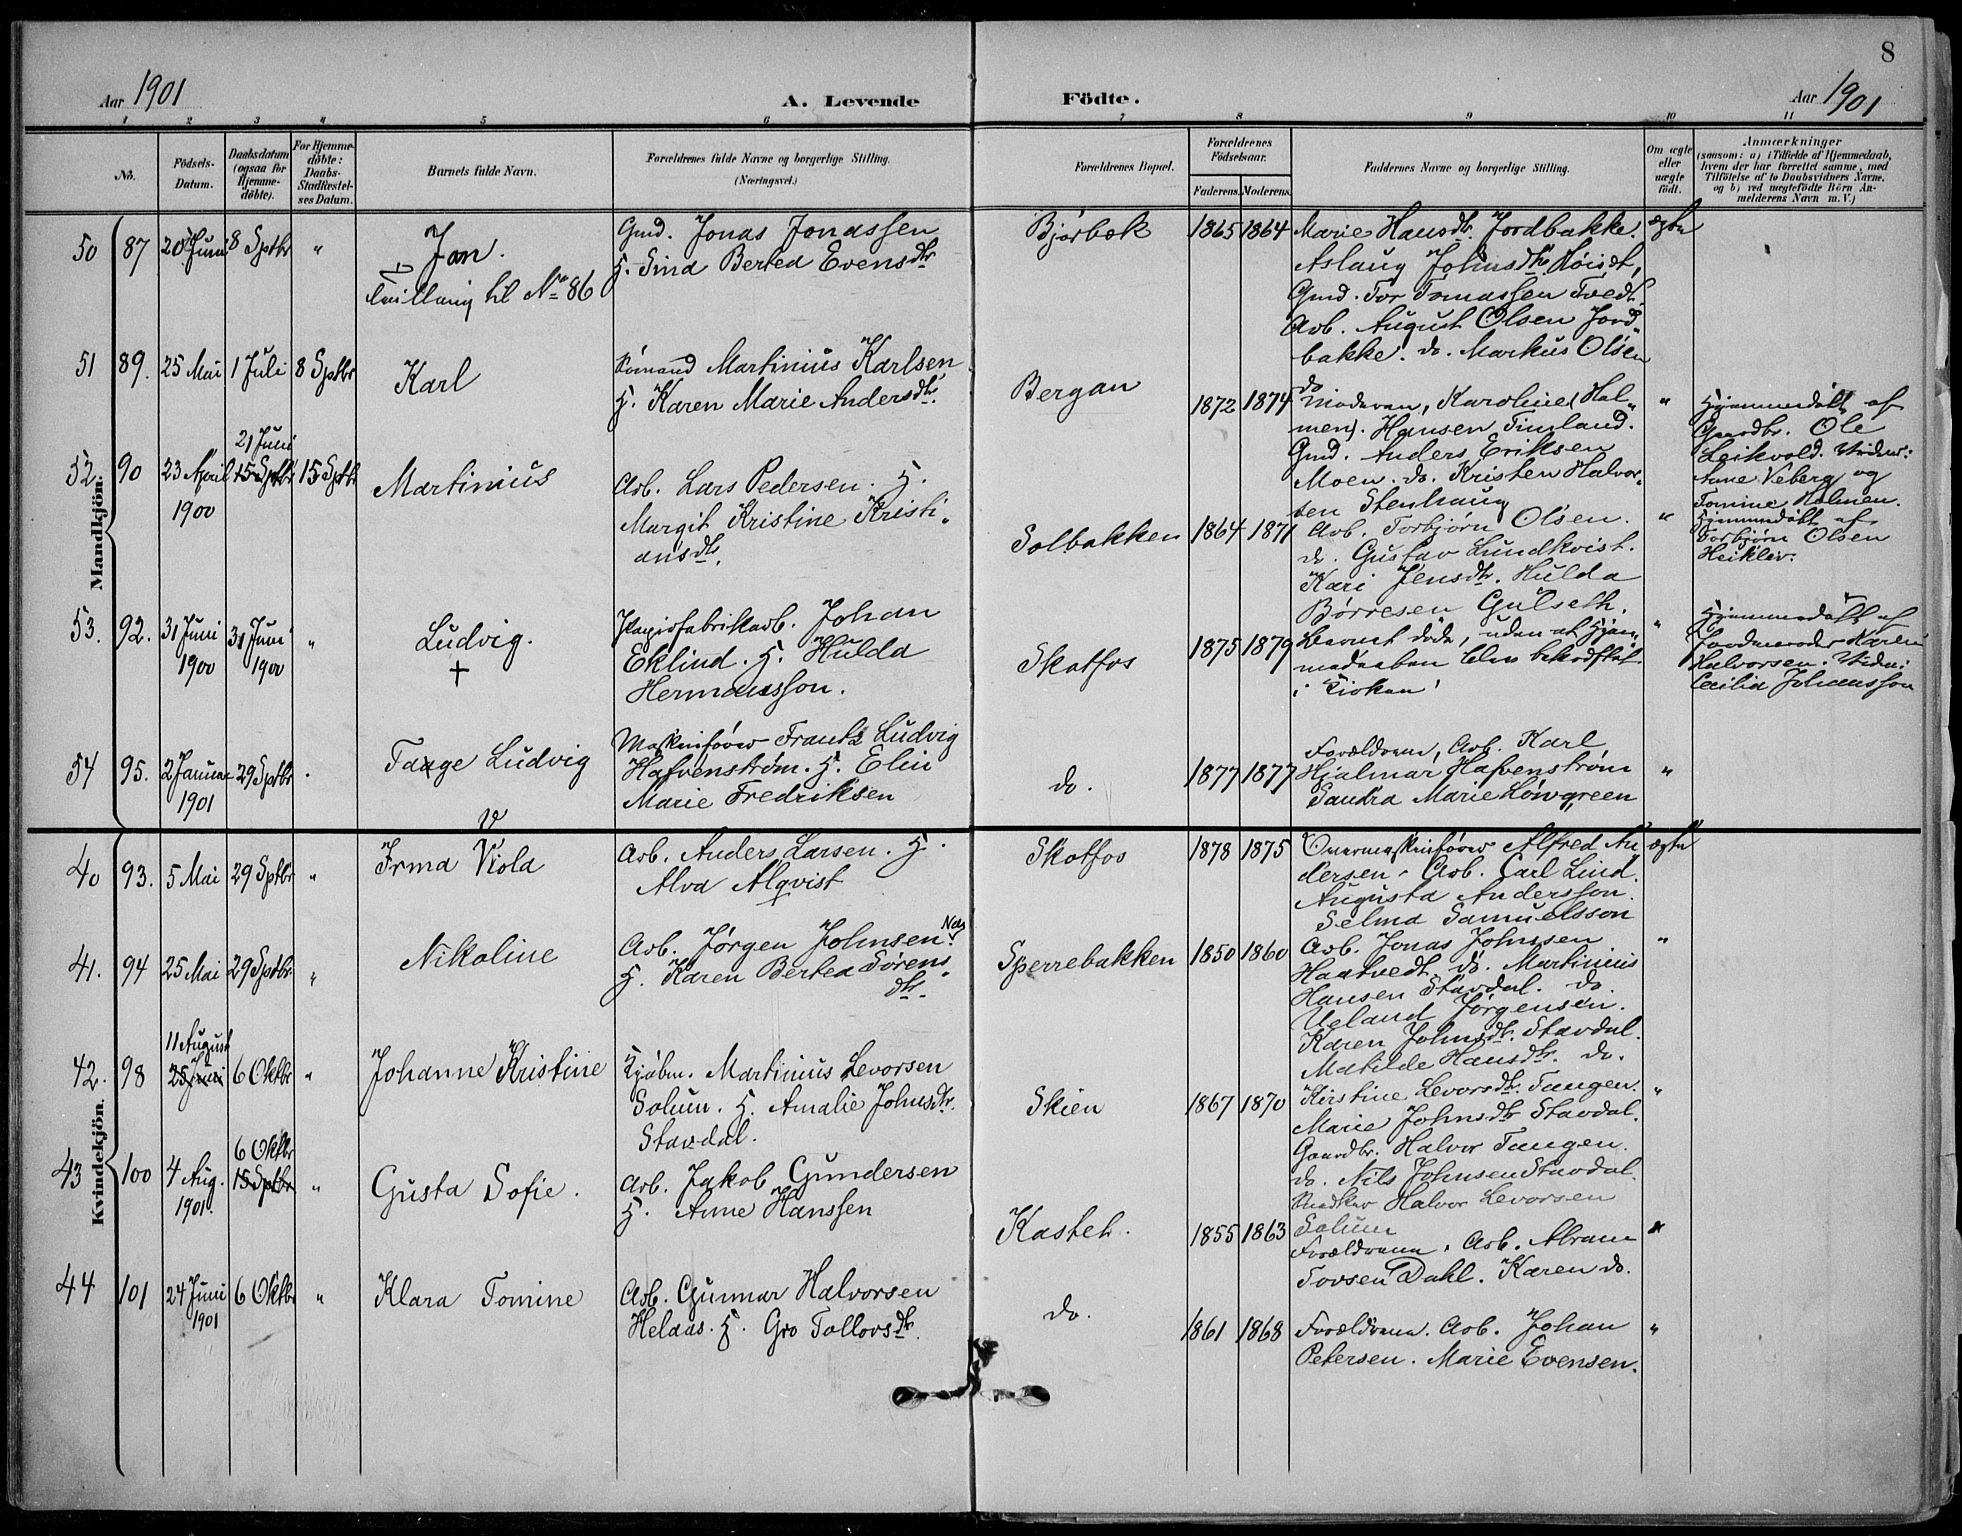 8
Aar 1901
A. Levende
Födte.
Aar 1901
1 2 3 4 5 6 7 8 9 10 11
No.
Födsels-Datum.
Daabsdatum (ogsaa for Hjemme-döbte).
For Hjemme-döbte: Daabs-Stadfæstel-ses Datum.
Barnets fulde Navn.
Forældrenes fulde Navne og borgerlige Stilling. (Næringsvei.)
Forældrenes Bopæl.
Forældrenes Födselsaar.
Faderens. Moderens.
Faddernes Navne og borgerlige Stilling.
Om ægte eller uægte födt.
Anmærkninger
(saasom: a) i Tilfælde af Hjemmedaab, hvem der har forrettet samme, med Tilföielse af to Daabsvidners Navne, og b) ved uægtefödte Börn An-melderens Navn m. V.)
Mandkjön.
50 87 20 Juni 8 Sptbr "
Jon.
Tvilling til No 86
Gmd. Jonas Jonassen
H. Sina Bertea Evensdtr
Bjørbæk 1865 1864
Marie Hansdtr. Jordbakke.
Aslaug Johnsdtr Høiset,
Gmd. Tor Tomassen Tvedt.
Arb. August Olsen Jord-
bakke. do. Markus Olsen
do
ægte
51 89. 25 Mai 1 Juli 8 Sptbr
Karl
Sømand Martinius Karlsen
H. Karen Marie Andersdtr.
Bergan 1872 1874
Moderen, Karoline Hol-
men). Hansen Timland.
Gmd. Anders Eriksen
Moen. do. Kristen Halvor-
sen Stenhaug
"
Hjemmedøbt af
Gaardbr. Ole
Leikvold. Vidner:
Anne Veberg og
Tomine Holmen.
52. 90 23 April 1900 21 Juni 15 Sptbr 15 Sptbr
Martinius
Arb. Lars Pedersen. H.
Margit Kristine Kristi-
ansdtr.
Solbakken 1864 1871
Arb. Torbjørn Olsen.
do. Gustav Lundkvist.
Kari Jensdtr. Hulda
Børresen Gulseth.
"
Hjemmedøbt af
Torbjørn Olsen
Heiklev.
53. 92. 31 Juni 1900 31 Juni 1900 "
Ludvig.
+
Papirfabrikarb. Johan
Eklind. H. Hulda
Hermansson.
Skotfos 1875 1879
Barnet døde, uden at Hjem-
medaaben blev bekræftet
i Kirken!
"
Hjemmedøbt af
Jordmoder Karen
Halvorsen. Vidne:
Cecilia Johansson
54 95. 2 Januar 1901 29 Sptbr "
Taage Ludvig
Maskinfører Frantz Ludvig
Hafvenstrøm. H. Elin
Marie Fredriksen
do. 1877 1877
Forældrene, Arb. Karl
Hjalmar Hafvenstrøm
Sandra Marie Løwgreen
"
Kvindekjön.
40 93. 5 Mai 29 Sptbr "
V
Irma Viola
Arb. Anders Larsen. H.
Alva Alqvist
Skotfos 1878 1875
Overmaskinfører Alfred An-
dersen. Arb. Carl Lind.
Augusta Andersson.
Selma Samuelsson
ægte
41. 94 25 Mai 29 Sptbr "
Nikoline
Arb. Jørgen Johnsen
H. Karen Bertea Sørens-
dtr.
Sperrebakken 1850 1860
Arb. Jonas Johnsen
Haatvedt. do. Martinius
Hansen Stavdal. do.
Ueland Jørgensen.
Karen Johnsdtr. Stavdal.
Matilde Hansdtr. do.
"
42. 98 11 August 25 Juni 6 Oktbr "
Johanne Kristine
Kjøbm. Martinius Levorsen
Solum. H. Amalie Johnsdtr.
Stavdal.
Skien 1867 1870
Kirstine Levorsdtr. Tangen.
Marie Johnsdtr Stavdal.
Gaardbr. Halvor Tangen.
do. Nils Johnsen Stavdal.
Snedker Halvor Levorsen
Solum
"
43 100 4 Aug. 1901. 6 Oktbr 15 Sptbr "
Gusta Sofie.
Arb. Jakob Gundersen
H. Anne Hanssen
Kastet. 1855 1863
Forældrene. Arb. Abram
Tovsen Dahl. Karen do.
"
44 101 24 Juni 1901 6 Oktbr "
Klara Tomine
Arb. Gunnar Halvorsen
Helaas. H. Gro Tollovsdtr.
do. 1861 1868
Forældrene. Arb. Johan
Petersen. Marie Evensen.
"